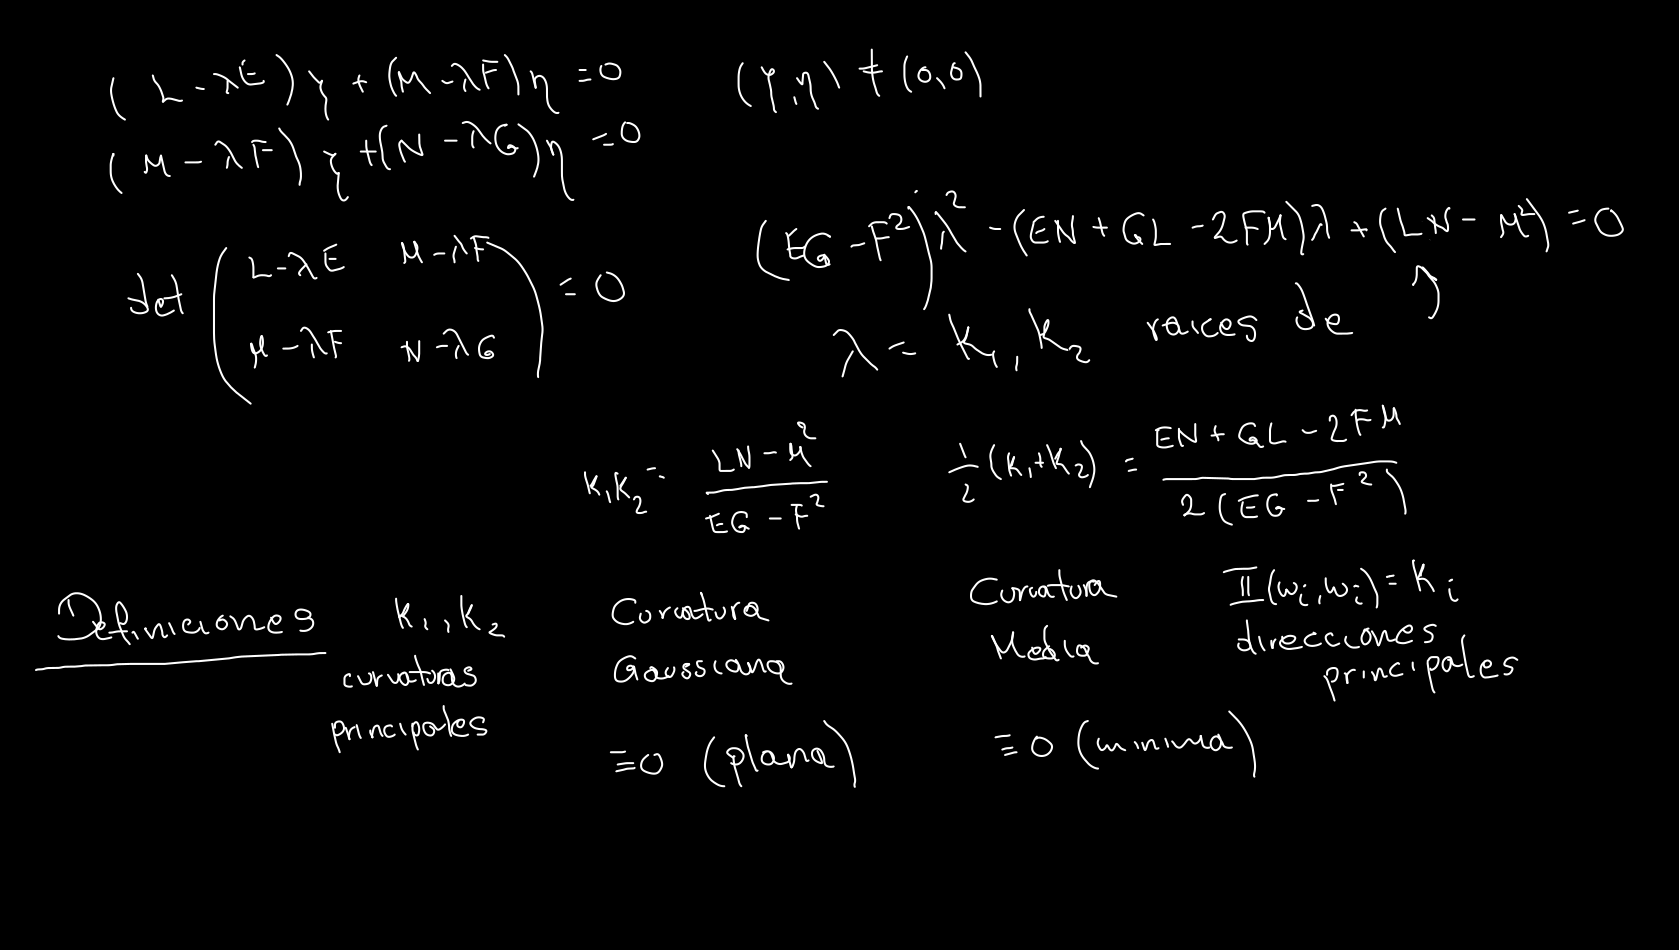 (L - λE) ξ + (M - λF) η = 0    (ξ, η) ≠ (0,0)
(M - λF) ξ + (N - λG) η = 0
(EG - F²) λ² - (EN + GL - 2FM) λ + (LN - M²) = 0
det ( L - λE   M - λF
M - λF   N - λG ) = 0
λ = K₁, K₂ raices de ↑
K₁K₂ = (LN - M²) / (EG - F²)    1/2 (K₁ + K₂) = (EN + GL - 2FM) / (2 (EG - F²))
Definiciones
K₁, K₂
curvaturas
principales
Curvatura
Gaussiana
≡ 0 (plana)
Curvatura
Media
≡ 0 (minima)
II(wᵢ, wᵢ) = Kᵢ
direcciones
principales